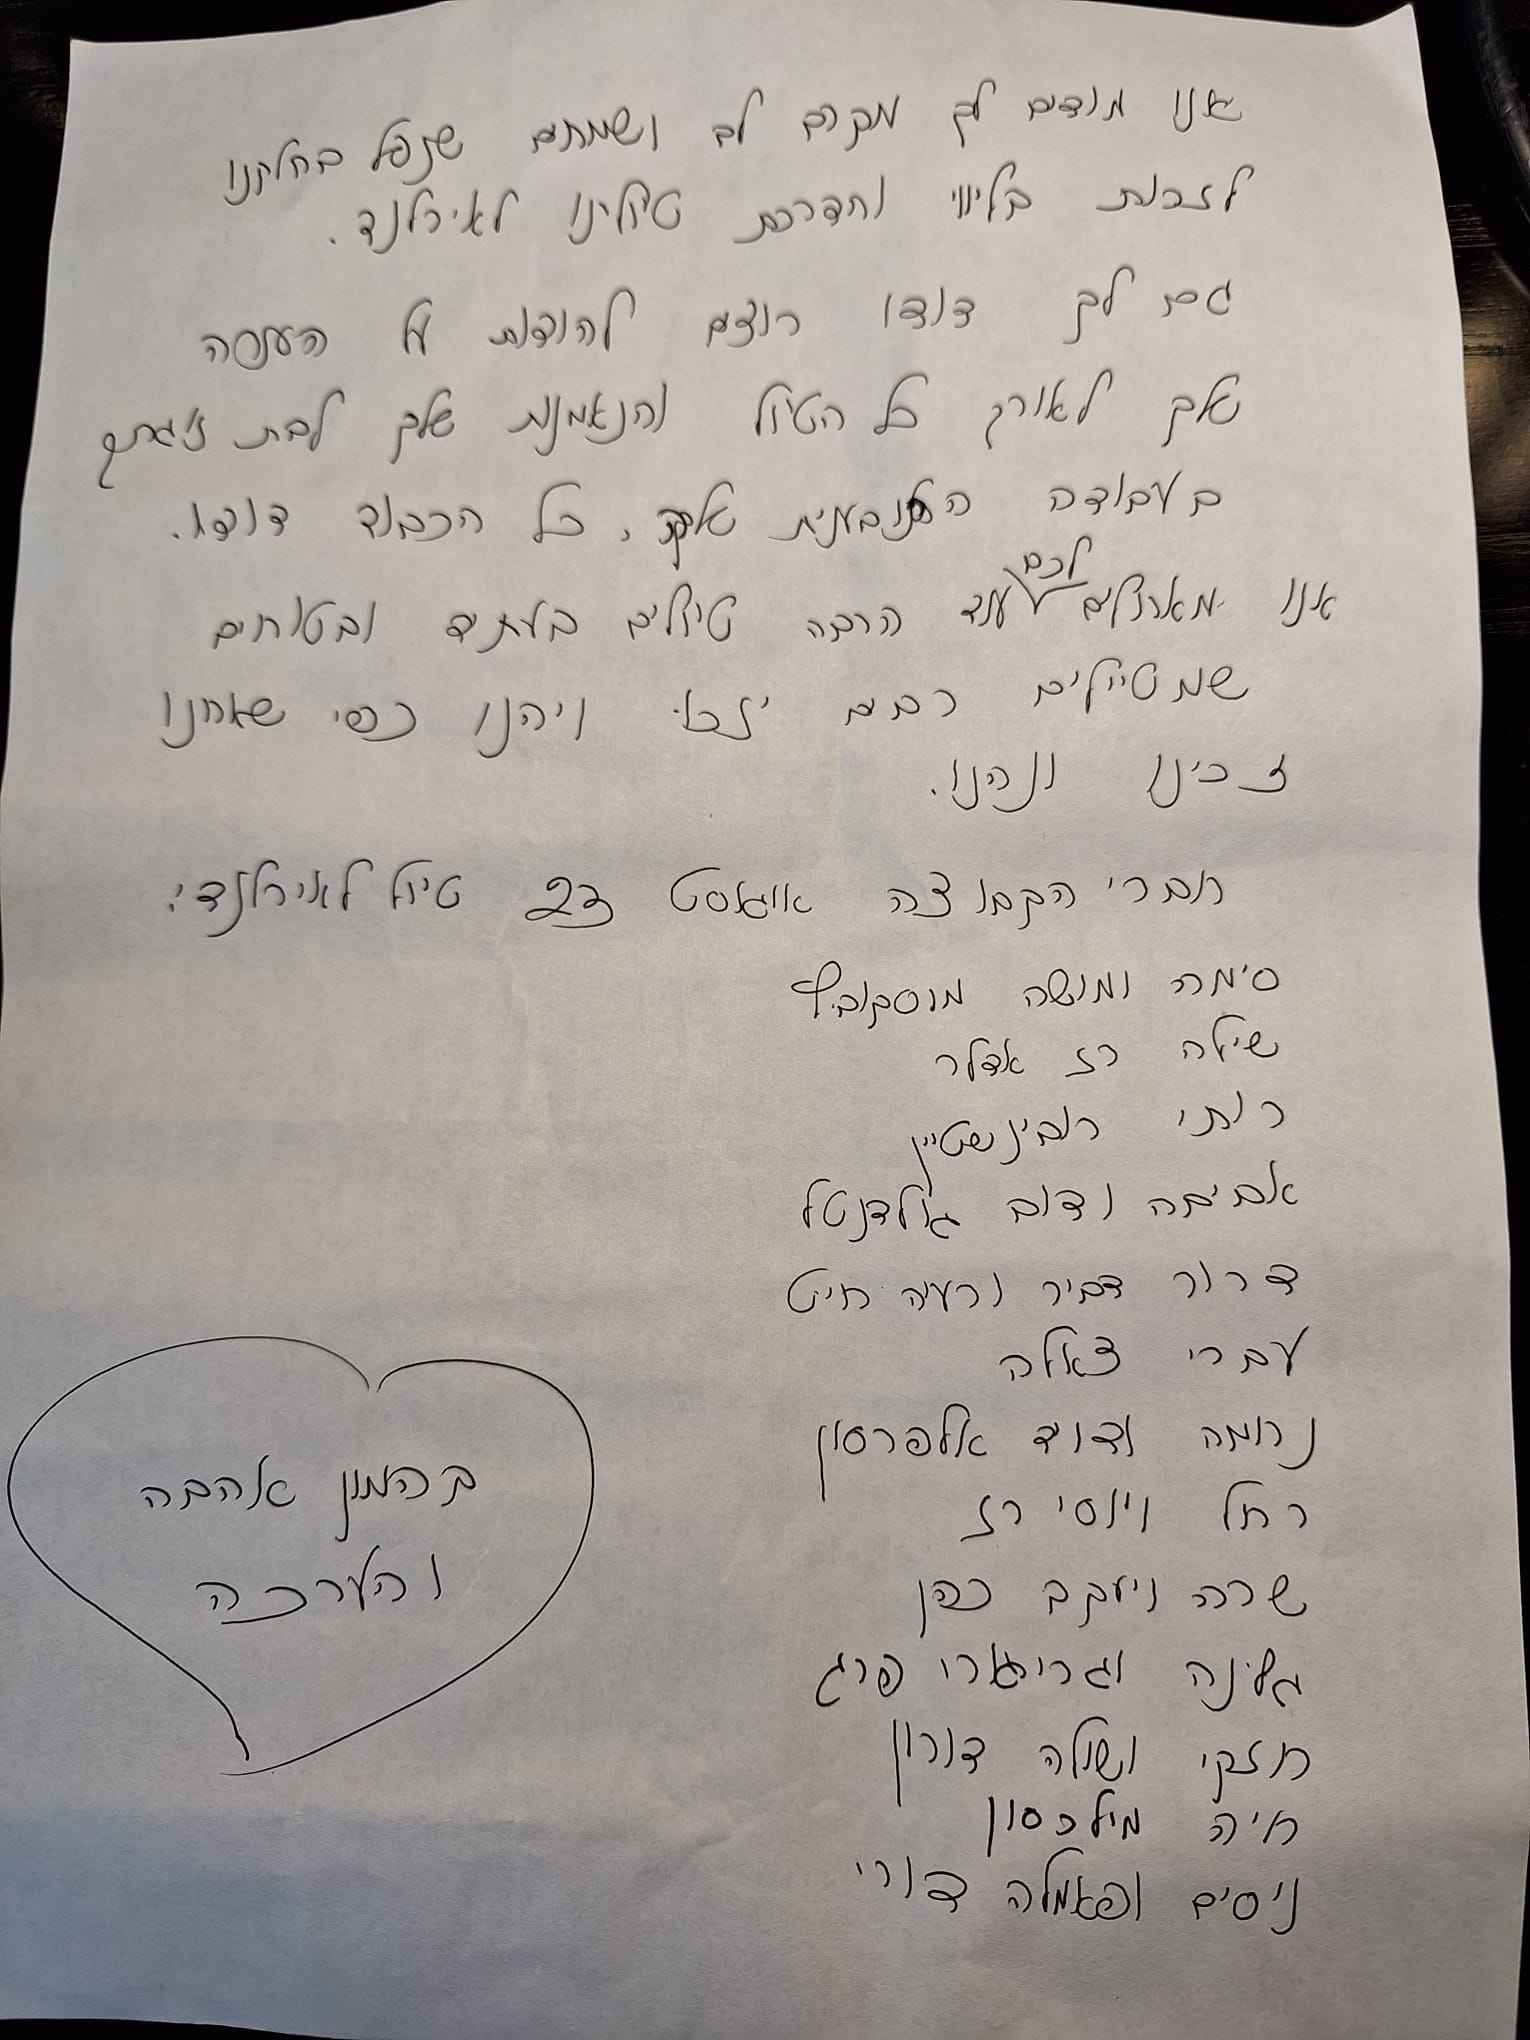 אנו מודים לך מקרב לב ושמחים שנפל בחלקנו
לזכות בליווי והדרכת טיולינו לאירלנד.
גם לך דודו רוצים להודות על העזרה
שלך לאורך כל הטיול והנאמנות שלך לבת זוגתך
בעבודה התובענית שלך. כל הכבוד דודו.
אנו מאחלים לכם עוד הרבה טיולים בעתיד ובטוחים
שמטיילים רבים יזכו ויהנו כפי שאנחנו
זכינו ונהנו.
חברי הקבוצה אוגוסט 23 טיול לאירלנד:
סימה ומשה מוסקוביץ
שילה רז אדלר
רותי רובינשטיין
אביבה ודוב גולדנטל
דרור דביר ורעיה חיט
עברי צאלה
נחמה ודוד אלפרסון
רחל ויוסי רז
שרה ויעקב כהן
גלינה וגריגורי פרג
חזקי ושולה דורון
חיה מילכסון
ניסים ופאמלה דורי
בהמון אהבה
והערכה